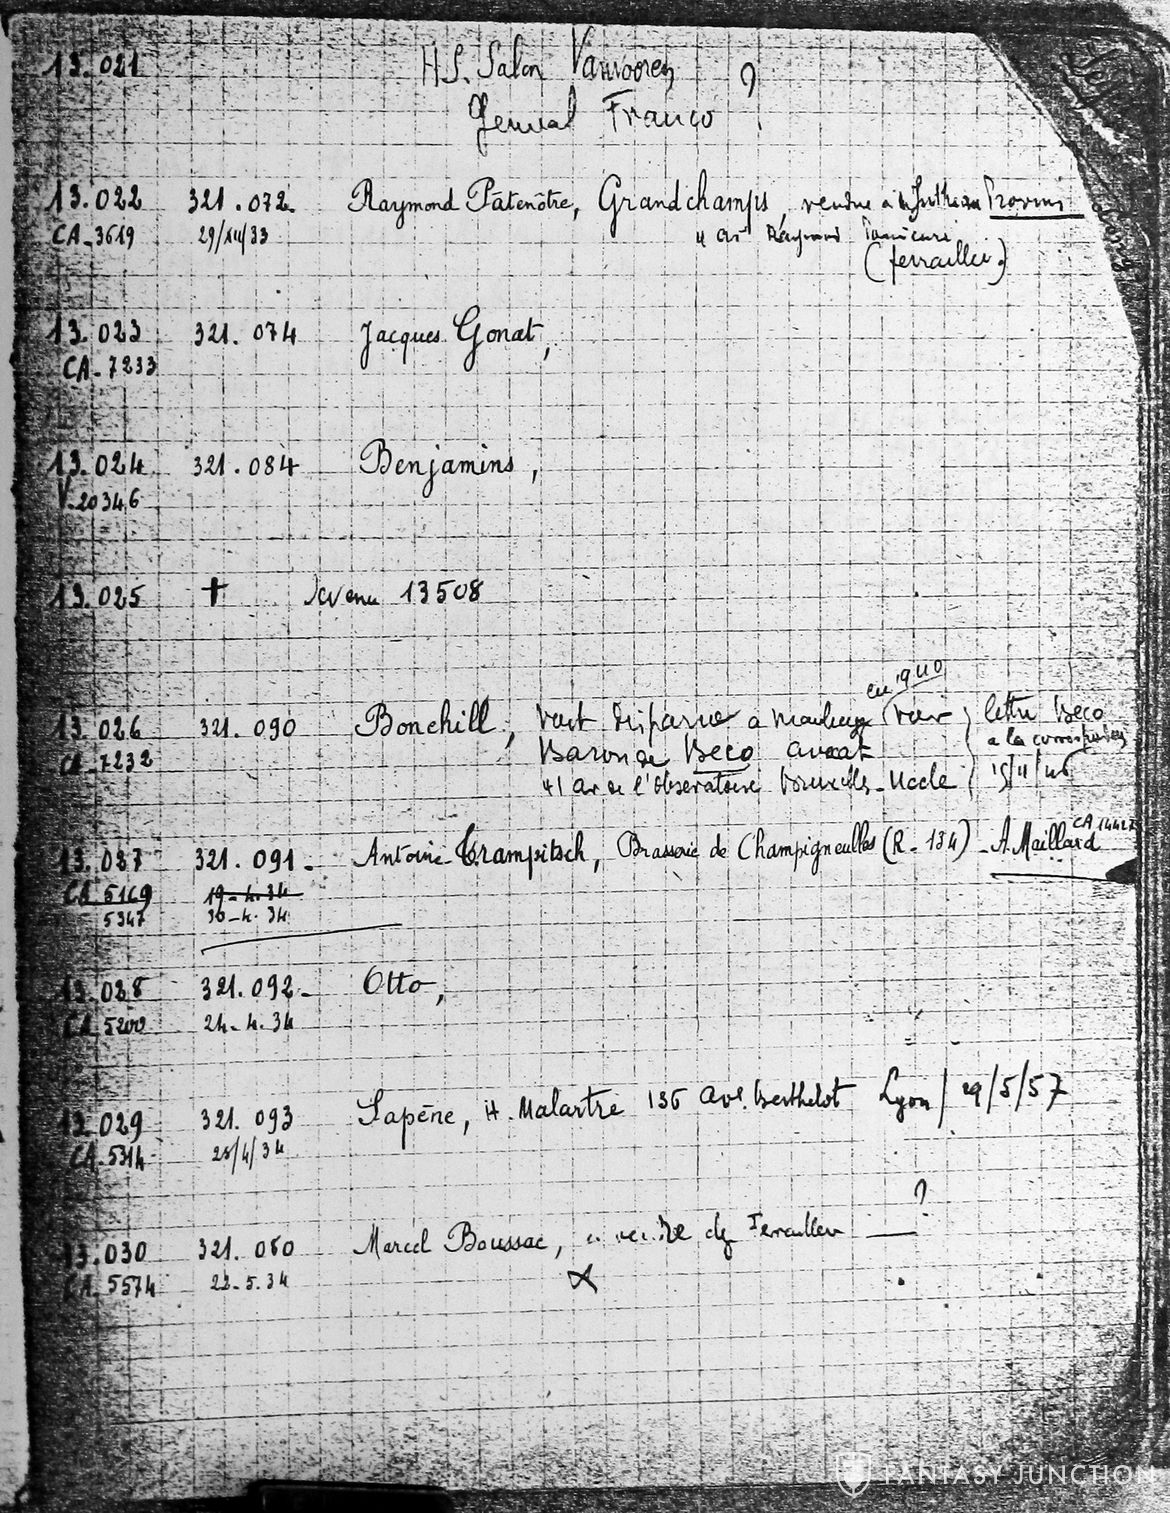 13.021 H.S. Salon Vanvooren ?
General Franco
13.022 321.072. Raymond Pâtenôtre, Grandchamps, vendue à Provins
CA-3619 29/XII/33 Raymond
(ferrailleur)
13.023 321.074 Jacques Gonat,
CA-7233
13.024 321.084 Benjamins,
V-20346
13.025 † 13508
en 1940
13.026 321.090 Bonehill, disparue a lettre Beco
CA-7232 Baron de Beco avocat a la
41 av de l'observatoire Bruxelles-Uccle 15/11/46
CA 14427
13.087 321.091- Antoine Trampitsch, Brasserie de Champigneulles (R-134) - A. Maillard
CA 5169 19-4.34
5347 30-4.34
13.028 321.092- Otto,
CA 5200 24-4.34
13.029 321.093 Lapène, H. Malartre 136 ave. Berthelot Lyon / 29/5/57
CA-5314 28/4/34
?
13.030 321.060 Marcel Boussac,
CA-5574 22-5.34
FANTASY JUNCTION